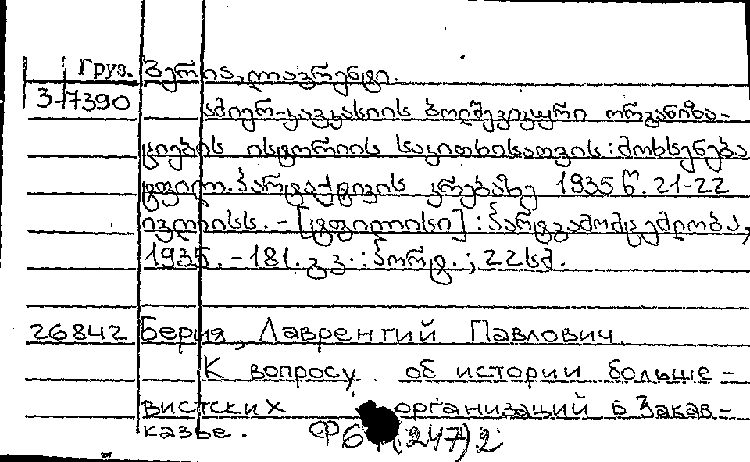 Груз. ბერია, ლავრენტი.
3-7390 ამიერ-კავკასიის ბოლშევიკური ორგანიზა-
ციების ისტორიის საკითხისათვის: მოხსენება
ტფილ. პარტაქტივის კრებაზე 1935 წ. 21-22
ივლისს. – [ტფილისი]: პარტგამომცემლობა,
1935. – 181. გვ.: პორტ.; 22სმ.
26842 Берия, Лаврентий Павлович.
К вопросу об истории больше-
вистских организаций в Закав-
казье. (247)2